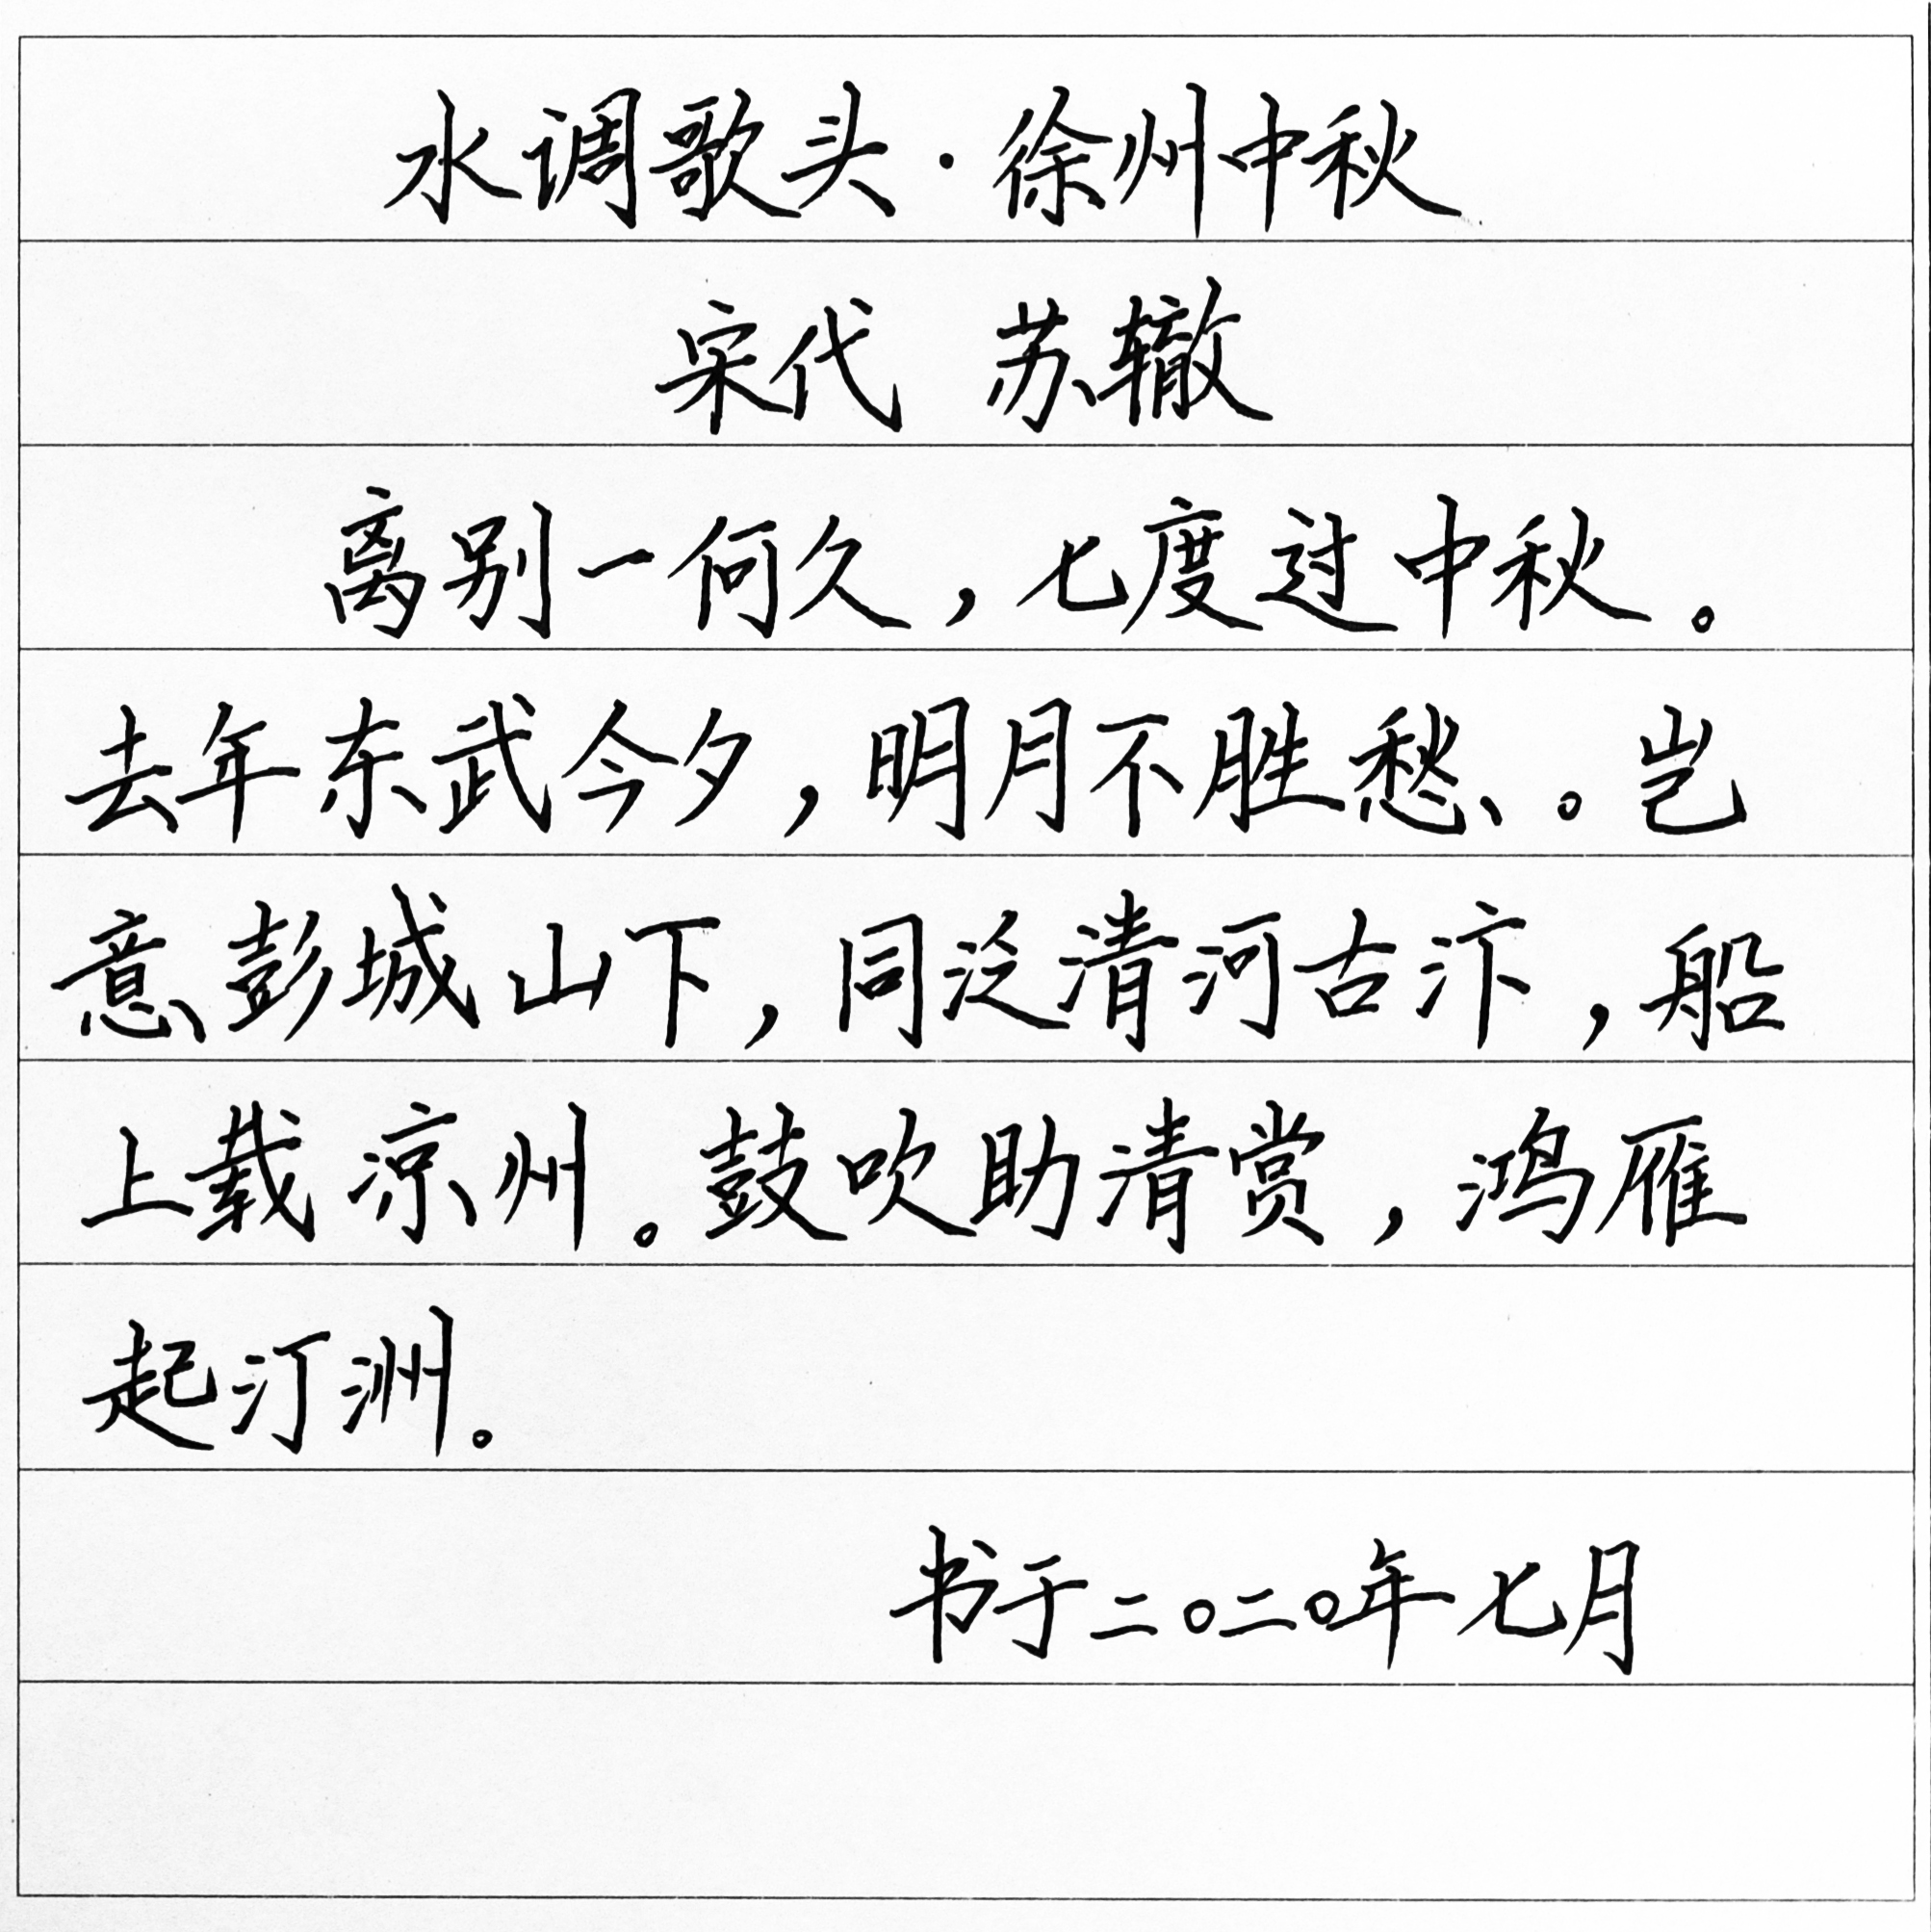 水调歌头·徐州中秋
宋代 苏辙
离别一何久，七度过中秋。
去年东武今夕，明月不胜愁。岂
意彭城山下，同泛清河古汴，船
上载凉州。鼓吹助清赏，鸿雁
起汀洲。
书于二〇二〇年七月